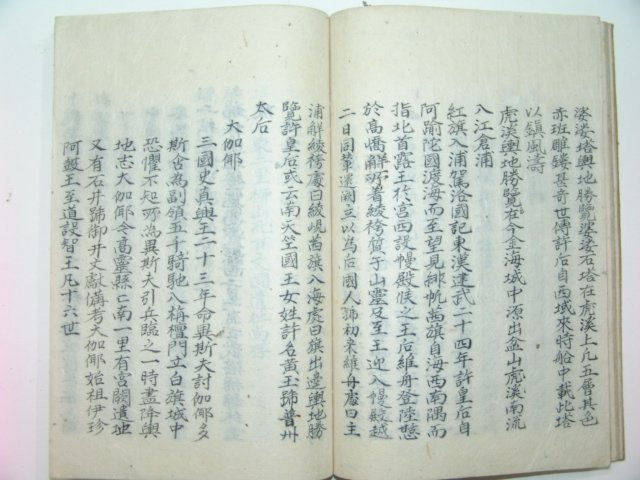 婆娑塔輿地勝覽婆娑石塔在虎溪上凡五層其色
赤班雖鏤甚奇世傳許后自西域來時船中載此塔
以鎭風濤
虎溪輿地勝覽在今金海城中源出盆山虎溪南流
入江倉浦
紅旗入浦駕洛國記東漢建武二十四年許皇后自
阿踰陀國渡海而至望見緋帆茜旗自海西南隅而
指北首露王於宮西設幔殿候之王后維舟登陸憩
於高嶠解所着綾袴質于山靈及至王迎入幔殿越
二日同輦還闕立以爲后國人號初來維舟處曰主
浦解綾袴處曰綾峴茜旗入海處曰旗出邊輿地勝
覽許皇后或云南天竺國王女姓許名黃玉號普州
太后
大伽倻
三國史眞興王二十三年命異斯夫討伽倻多
斯含爲副領五千騎馳入栴檀門立白旗城中
恐懼不知所爲異斯夫引兵臨之一時盡降輿
地志大伽倻今高靈縣縣南一里有宮闕遺址
又有石井號御井文獻備考大伽倻始祖伊珍
阿豉王至道設智王凡十六世